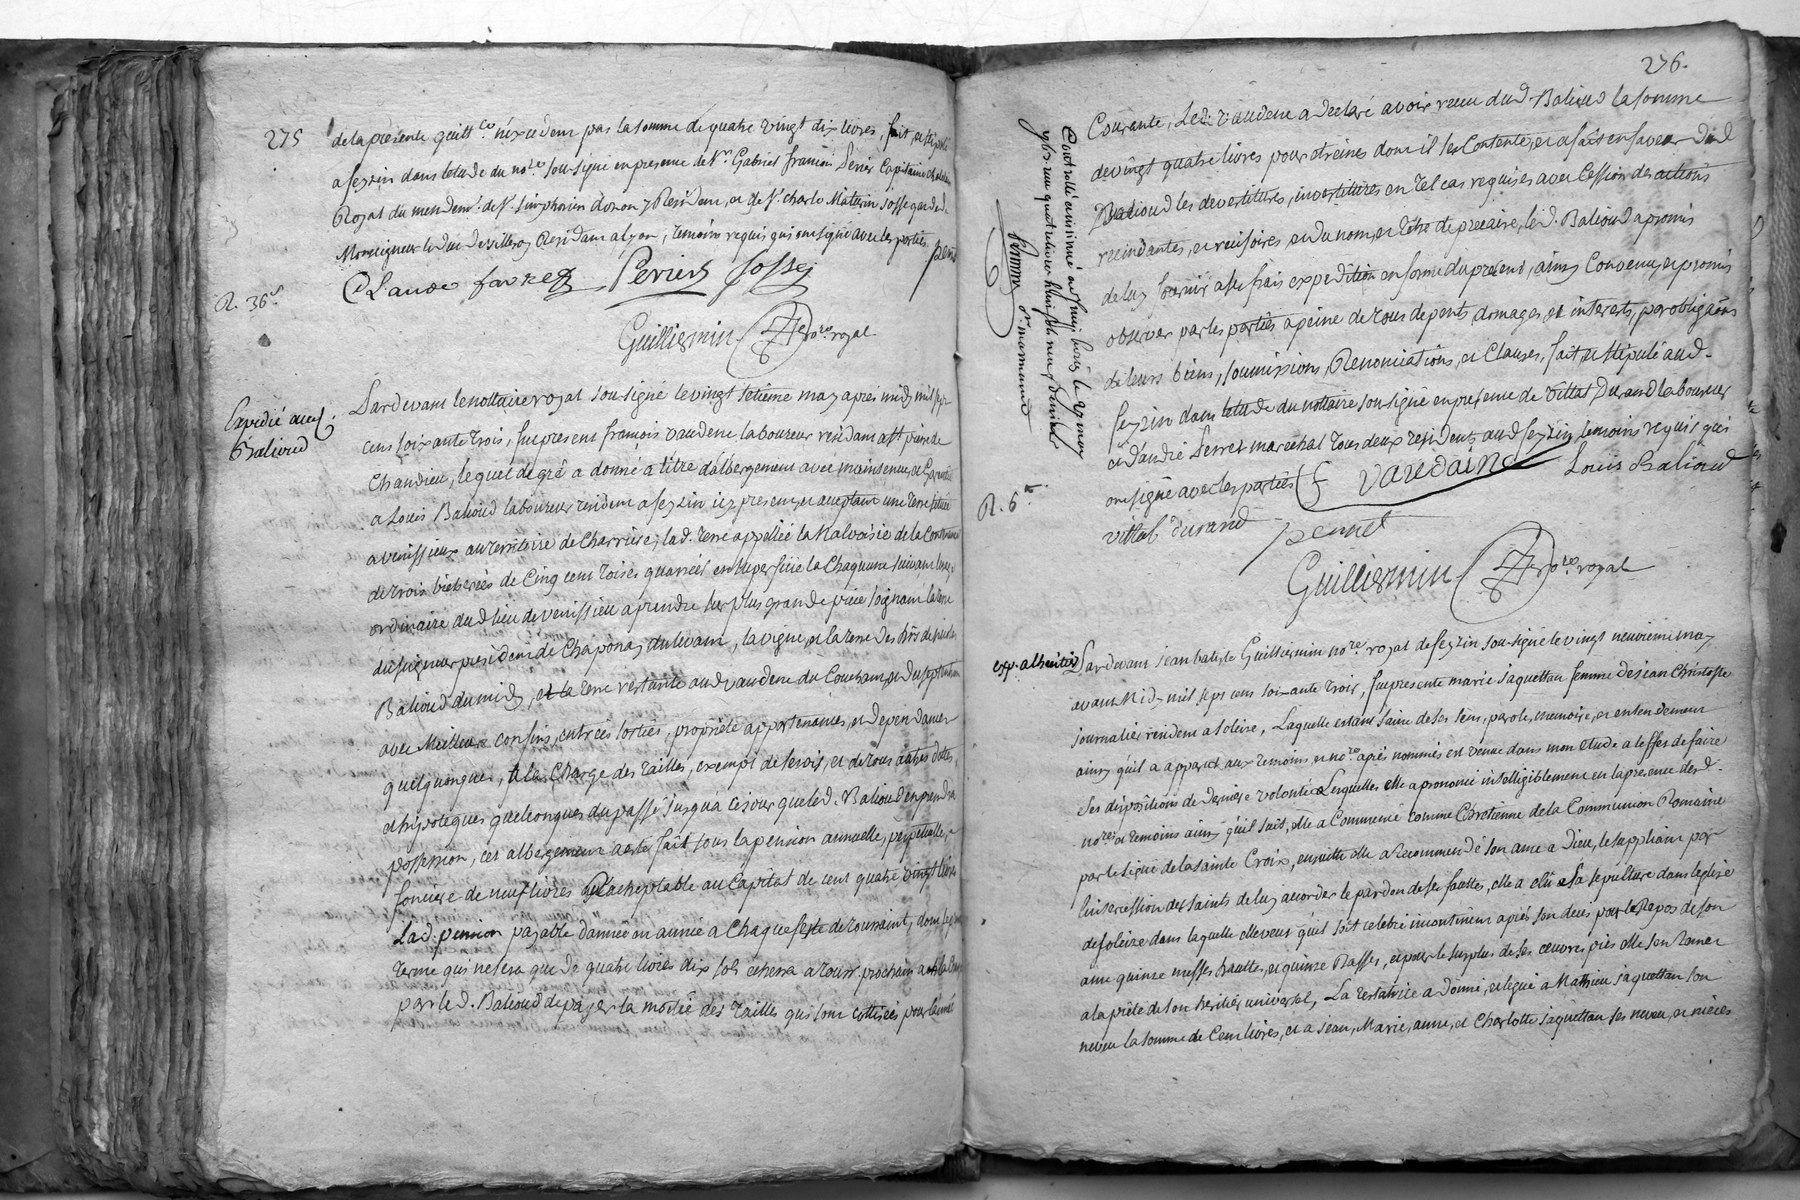 275
de la presente quitt.ce n'excedent pas la somme de quatre vingt dix livres, fait et stipulé
a feyzin dans letude du no.re sou-signé en presence de Sr. Gabriel françois Perier Capitaine chatelain
Royal du mendemt. de St. Simphorien dozon y Resident, et de Sr. charle Maturin Josse garde de
Monseigneur le duc de villeroy Resident a lyon, temoins requis qui ont signé avec les parties.
Claude favre Perier Josse
R. 36s.
Guilliermin no.re royal
Expedié aud.
Balioud
Pardevant le nottaire royal sou-signé le vingt setieme may après midy mil sept
cens soixante trois, fut present françois vaudene laboureur residant a St. pierre de
Chandieu, lequel de gré a donné a titre d'albergement avec maintenue, et Garentie
a Louis Balioud laboureur resident a feyzin icy present, et acceptant une terre située
a venissieux au territoire de Charriere, lad. terre appellée la Malvasie de la Contenue
de trois bicherées de Cinq cent toises quarrées en superficie la Chaquune suivant lusage
ordinaire dud. lieu de venissieu a prendre sur plus grande piece joignant la terre
du seigneur president de Chaponay du levant, la vigne, et la terre des hrs de
Balioud du midy, et la terre restante aud. vaudene du Couchant, et du septentrion
avec Meilleurs confins, entrées sorties, proprieté appartenances, et dependances
quelquonques, a la Charge des tailles, exempt de servis, et de tous autres dettes,
et hypoteques quelconques du passé jusqu'a ce jour que led. Balioud en prendra
possession, cet albergement a esté fait sous la pension annuelle, perpetuelle, et
fonciere de neuf livres Racheptable au Capital de cent quatre vingt livres
Lad. pension payable d'année en année a Chaque feste de toussaint, dont le
terme qui ne sera que de quatre livres dix sols echerra a touss. prochain
par led. Balioud de payer la moitié des tailles qui sont cottisées pour lannée
276.
Courante, Led. vaudene a declaré avoir receu dud. Balioud la somme
de vingt quatre livres pour etreines dont il se Contente, et a fait en faveur dud.
Balioud les devestitures, investitures en tel cas requises avec Cession des actions
recindantes, et recisoires et du nom, et titre de precaire, led. Balioud a promis
de luy fournir a ses frais expedition en forme du present, ainsy Convenu, et promis
observer par les parties a peine de tous depents, domages, et interests, par obligãons
de leurs biens, soumissions, Renonciations, et Clauses, fait, et stipulé aud.
feyzin dans letude du nottaire sou-signé en presence de vittal Durand laboureur
et d'andré Perret marechal tous deux residents aud. feyzin temoins requis qui
ont signé avec les parties f vaudaine Louis Balioud
vittal durand perret
R. 6
Guilliermin no.re royal
Controllé
exp. a lheritier
Pardevant jean batiste Guilliermin no.re royal de feyzin sou-signé le vingt neuvieme may
avant Midy mil sept cens soixante trois, fut presente marie jaquettan femme de jean Christofle
journalier resident a soleize, Laquelle estant saine de ses sens, parole, memoire, et entendement
ainsy qu'il a apparut aux temoins, et no.re après nommés est venue dans mon etude a leffet de faire
ses dispositions de derniere volonté Lesquelles elle a prononcé intelligiblement en la presence desd.
no.re et temoins ainsy qu'il suit, elle a Commencé comme Chretienne de la Communion Romaine
par le signe de la sainte Croix, ensuitte elle a recommendé son ame a Dieu, le suppliant par
lintercession des saints de luy accorder le pardon de ses fauttes, elle a elu sa sepulture dans leglise
de soleize dans laquelle elle veut qu'il soit celebré incontinent après son deces pour le Repos de son
ame quinze messes hauttes, et quinze Basses, et pour le surplus de ses œuvres pies elle s'en remet
a la piété de son heritier universel, La testatrice a donné, et legué a Mathieu jaquettan son
neveu la somme de Cent livres, et a jean, Marie, anne, et Charlotte jaquettan ses neveu, et nièces